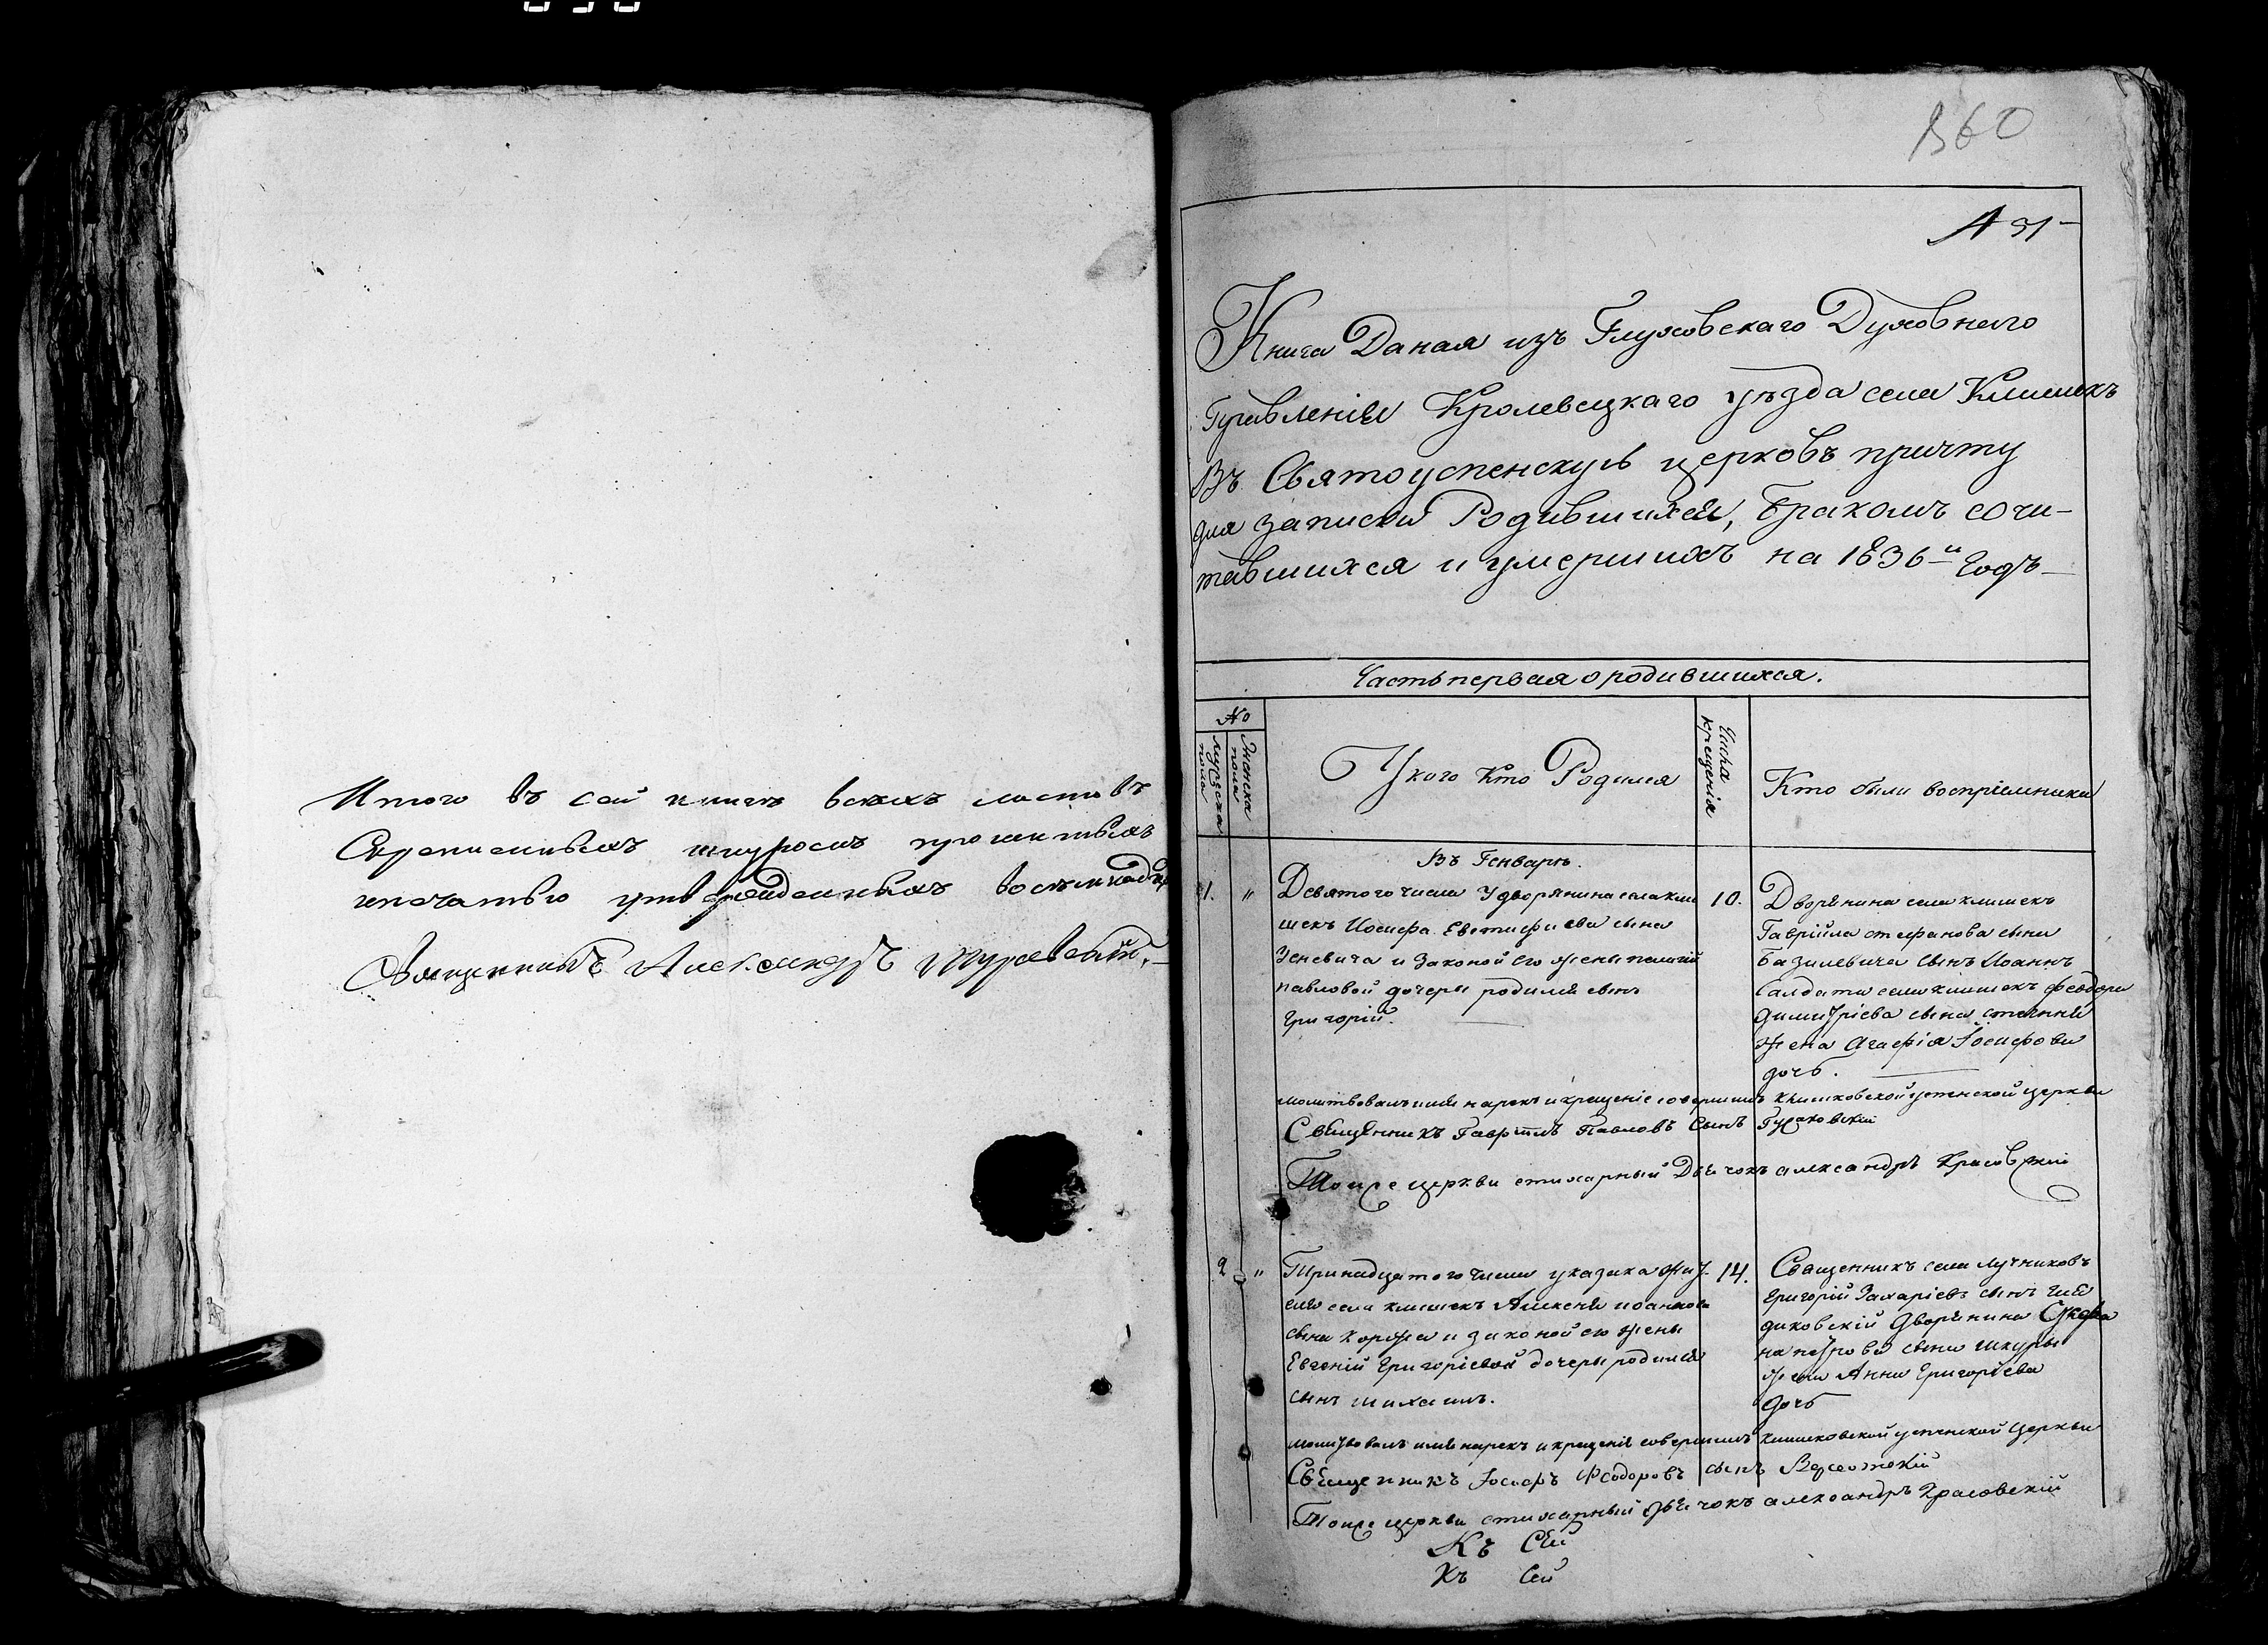 Итого въ сей книге всехъ листовъ
Скрепленныхъ шнуромъ прошитыхъ
ипечатью утвержденныхъ восемнадца
Священникъ Александръ
360
Книга Даная изъ Глуховскаго Духовнаго
Правленія Кролевецкаго уѣзда села Клишекъ
Въ Святоуспенскую церковъ причту
для записки Родившихся, Бракомъ сочи-
тавшихся и умершихъ на 1836й Годъ
Часть первая о родившихся.
№
мужеска пола
Женска пола
У кого Кто Родился
Числа крещенія
Кто были воспріемники
Въ Генварѣ.
1. " Девятого числа У дворянина села Кли
шекъ Иосифа Евстафиева сына
Зеневича и Законой его жены пелагіи
павловой дочеры родился сынъ
Григорій.
10.
Дворянина села клишекъ
Гавріила стефанова сына
Базилевича сынъ Иоаннъ
Салдата села клишекъ феодора
димитріева сына
жена Агафія Іосифова
дочь.
молитвовалъ имя нарекъ и крещеніе совершилъ Клишковской успенской церкви
Священникъ Гавріилъ Павловъ сынъ
Тоиже церкви стихарный Дьячокъ александръ Красовскій
2 " Тринадцатого числа указика жит
еля села клишекъ Алексея иоаннова
сына коржа и законой его жены
Евгеній Григоріевой дочеры родился
сынъ михаилъ.
14.
Священникъ села Лучниковъ
Григорій Захаріевъ сынъ
диковскій Дворянина
на петрова сына шкуры
жена Анна Григоріева
дочь
молитвовалъ имя нарекъ и крещеніе совершилъ клишковской успенской церкви
Священникъ Іосифъ Феодоровъ сынъ
Тоиже церкви стихарный дьячокъ александръ Красовскій
Къ Сей
Къ Сей